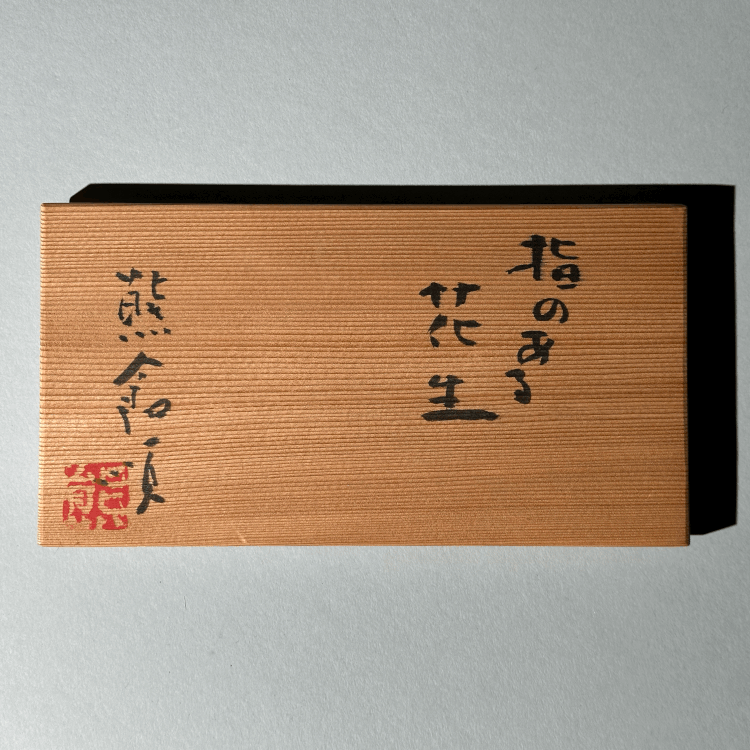 指のある
花生
熊倉順